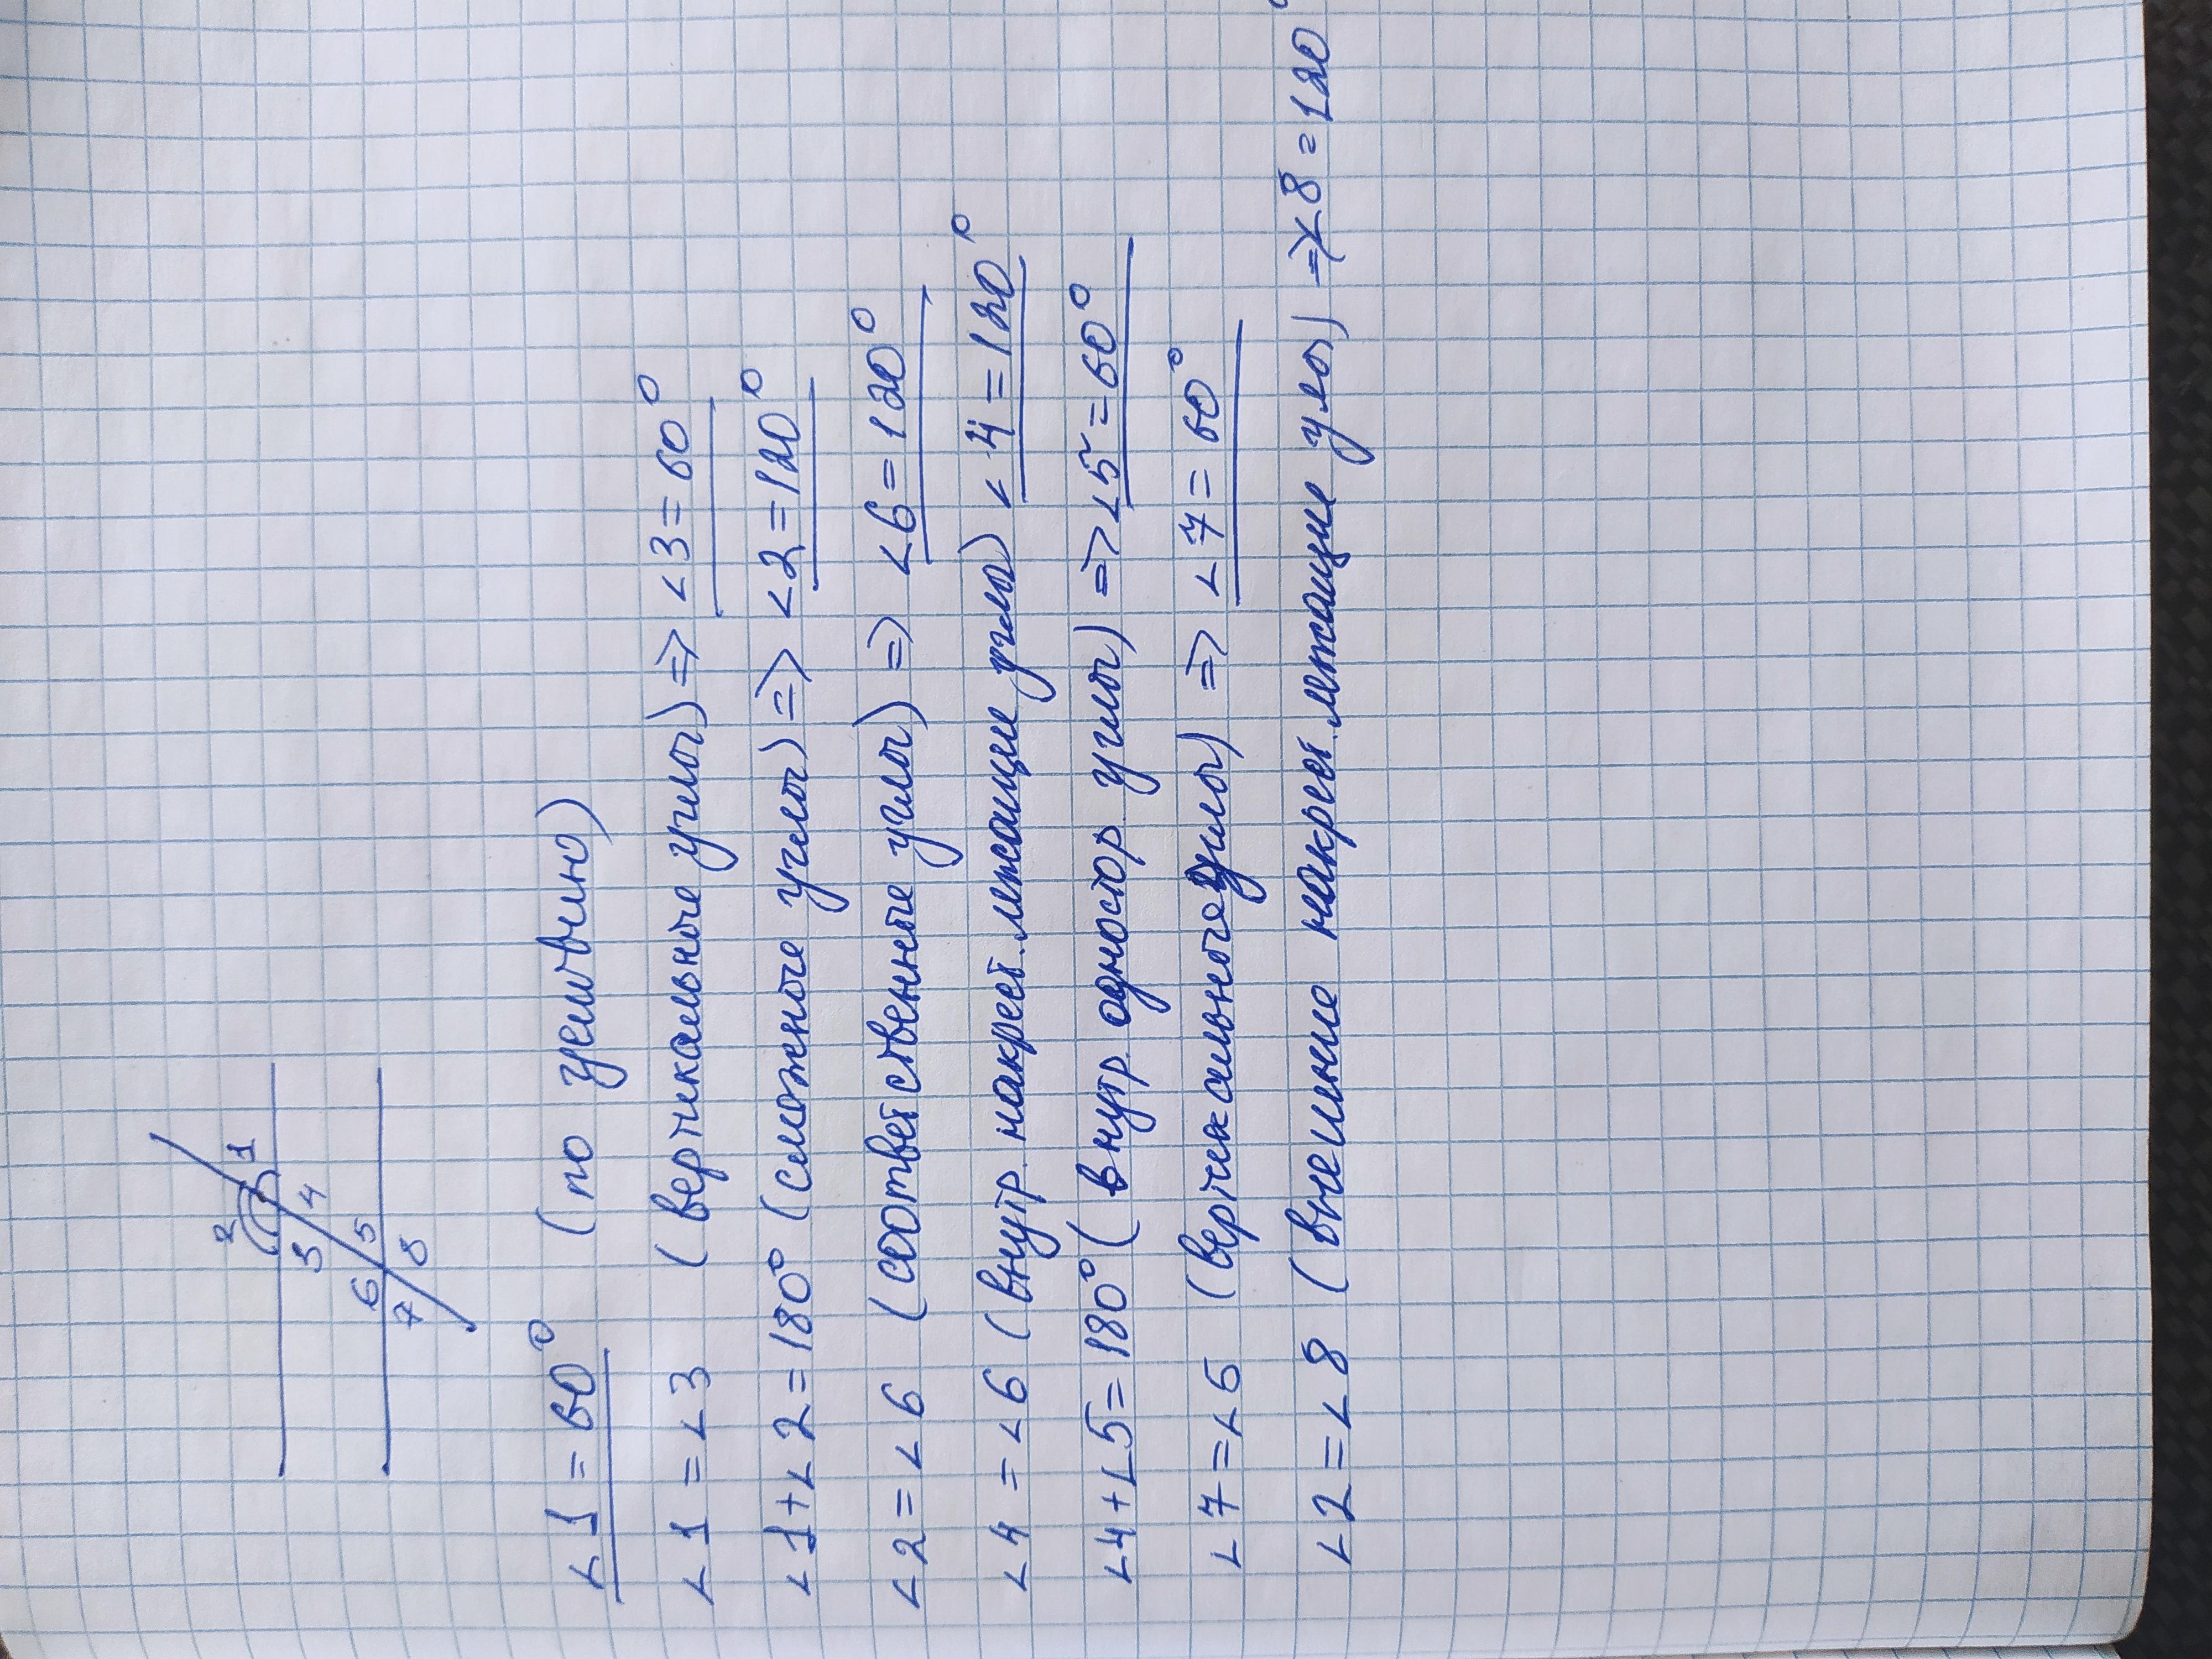 2 1
3 4
6 5
7 8
∠1 = 60° (по условию)
∠1 = ∠3 (вертикальные углы) => ∠3 = 60°
∠1 + ∠2 = 180° (смежные углы) => ∠2 = 120°
∠2 = ∠6 (соответственные углы) => ∠6 = 120°
∠4 = ∠6 (внутр. накрест. лежащие углы) ∠4 = 120°
∠4 + ∠5 = 180° (внутр. одностор. углы) => ∠5 = 60°
∠7 = ∠5 (вертикальные углы) => ∠7 = 60°
∠2 = ∠8 (внешние накрест. лежащие углы) => ∠8 = 120°